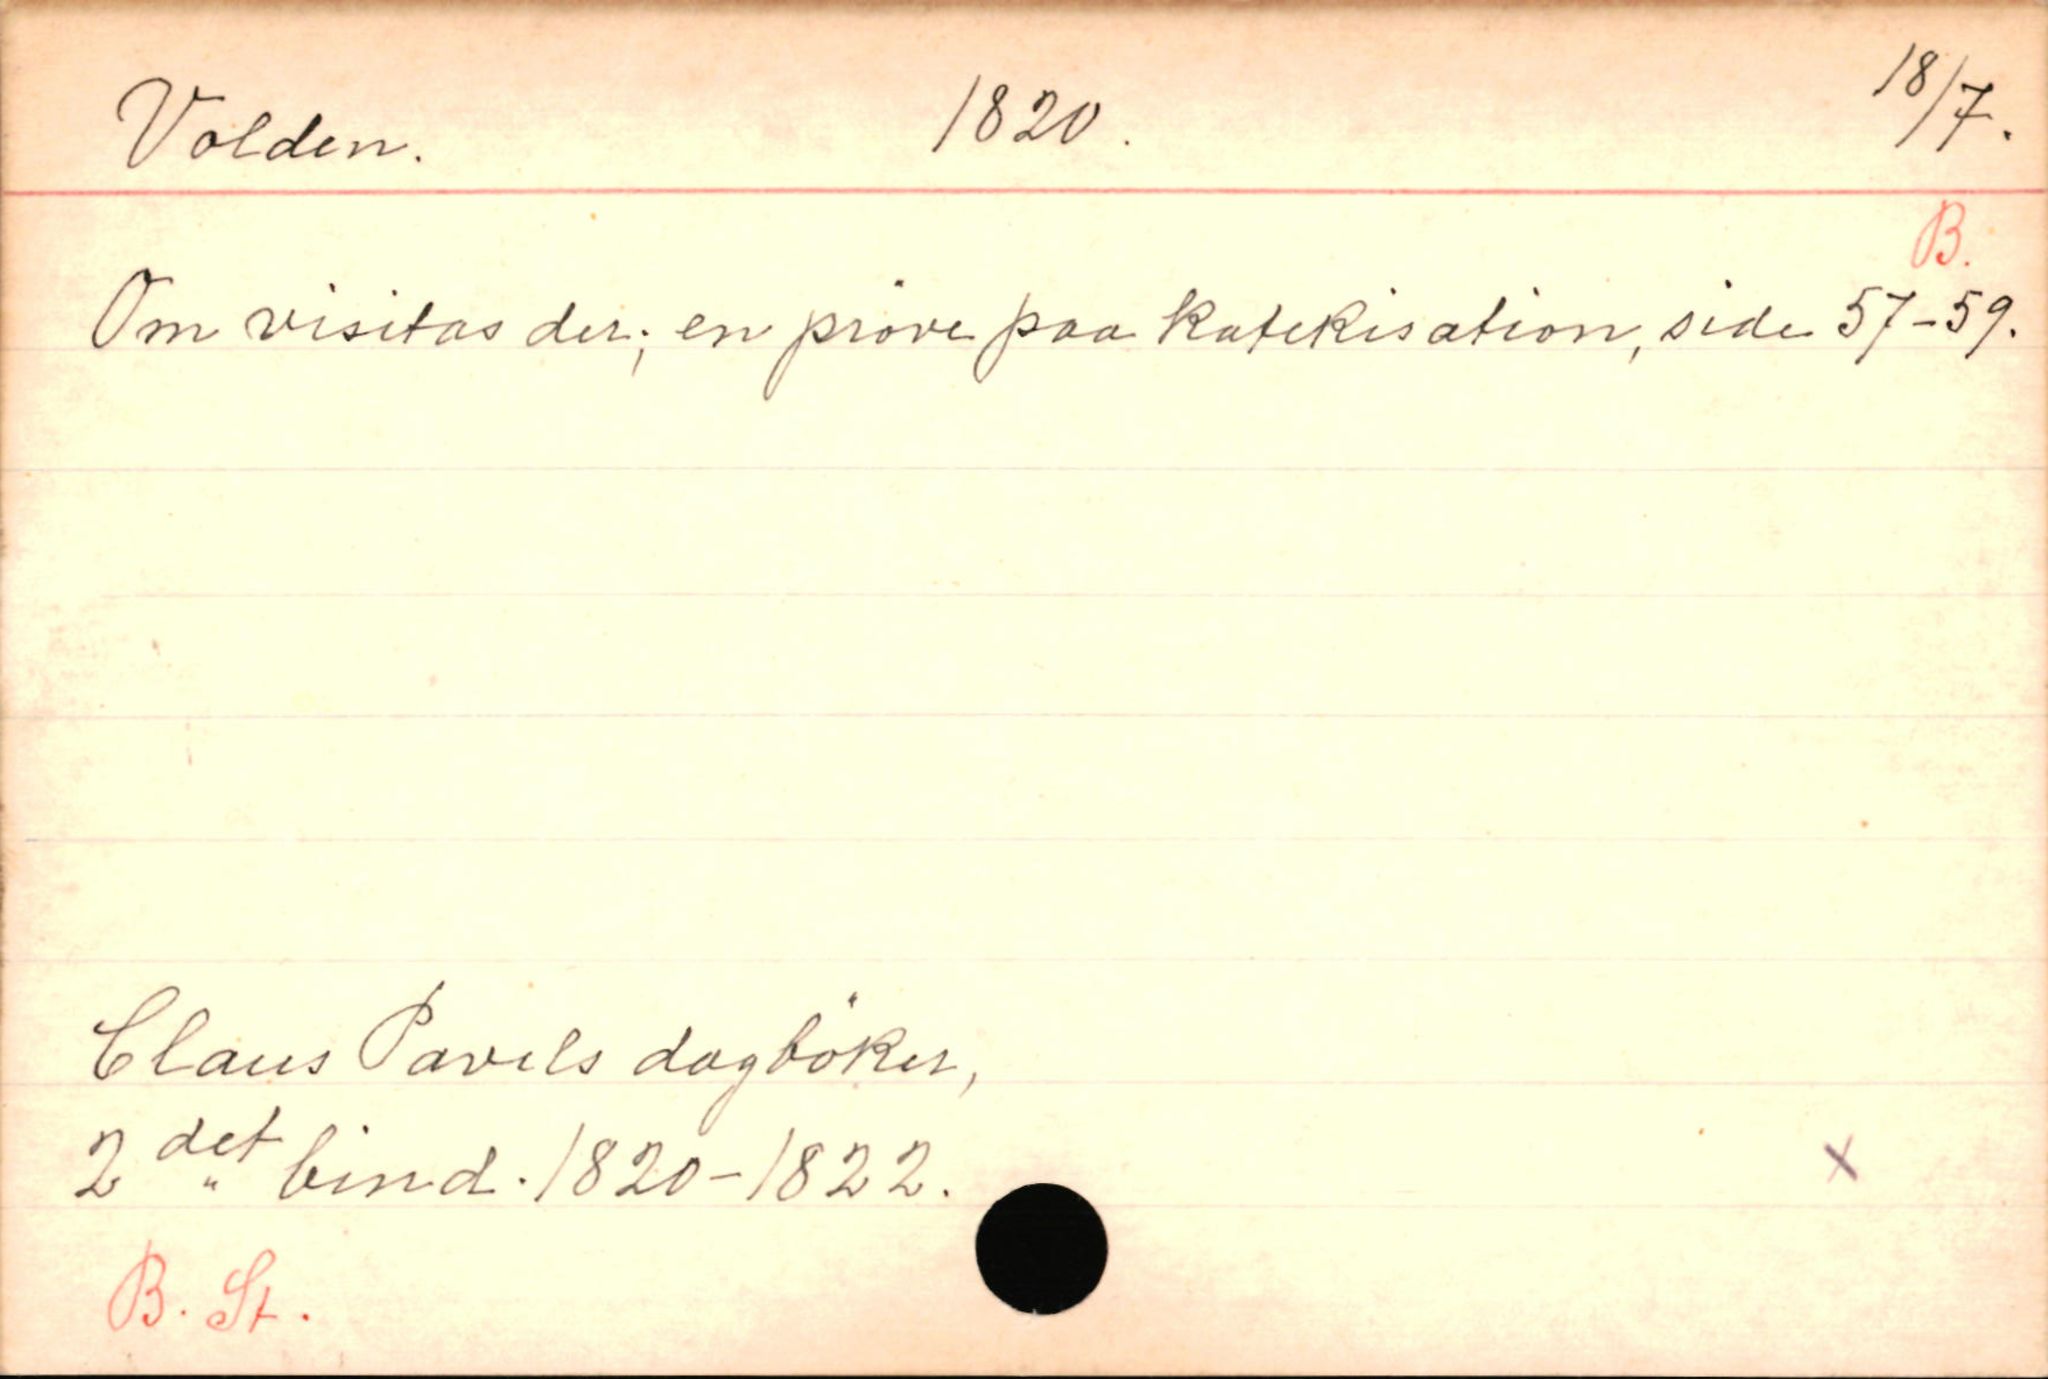 Volden. 1820. 18/7.
B.
Om visitas der; en pröve paa katekisation, side 57-59.
Claus Pavels dagböker,
2det bind. 1820-1822.
x
B. St.